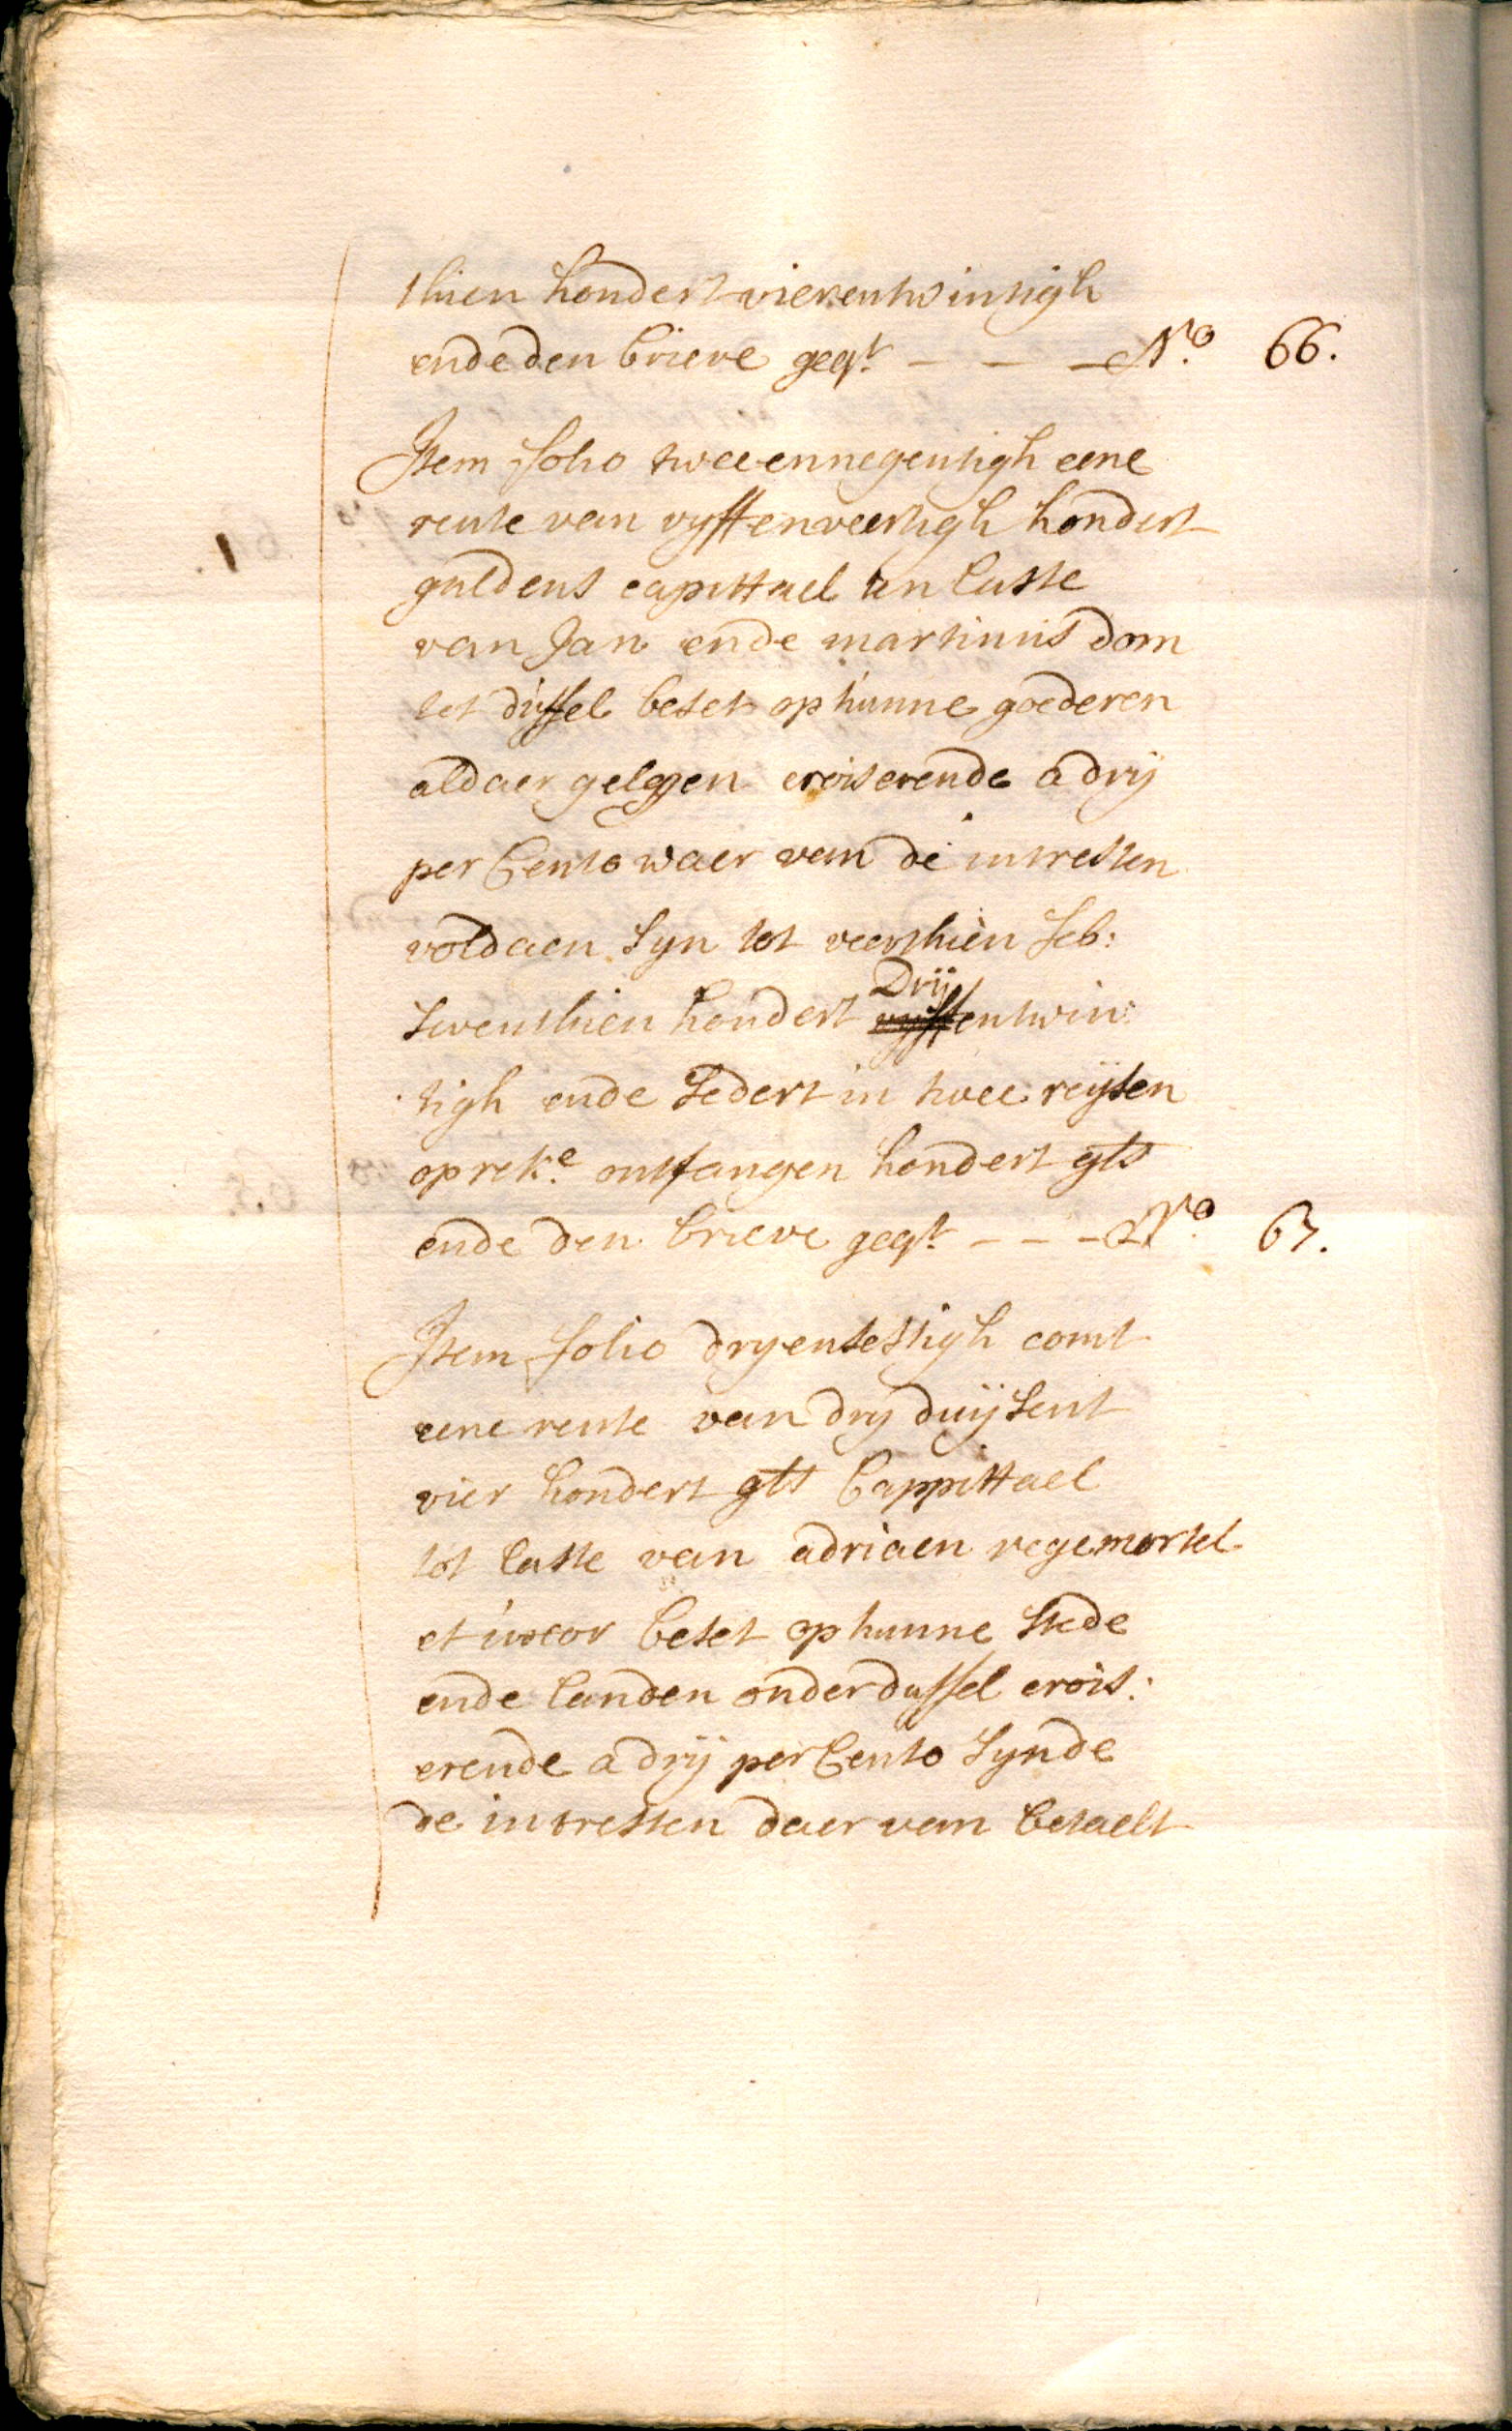 thien hondert vierentwintigh
ende den brieve geqt. - - - No. 66.
Item folio tweeennegentigh eene
rente van vyffenveertigh hondert
guldens capittael tn laste
van Jan ende martinus dom
tot duffel beset op hunne goederen
aldaer gelegen croiserende a drij
per Cento waer van de intresten
voldaen syn tot veerthien feb:
seventhien hondert Drij vyffentwin:
tigh ende sedert in twee reysen
op reke. ontfangen hondert gls
ende den brieve geqt. - - - No. 67.
Item folio dryensestigh comt
eene rente van drij duijsent
vier hondert gls Cappittael
tot laste van adriaen regemortel
et uxor beset op hunne stede
ende landen onder duffel crois:
erende a drij per Cento synde
de intresten daer van betaelt